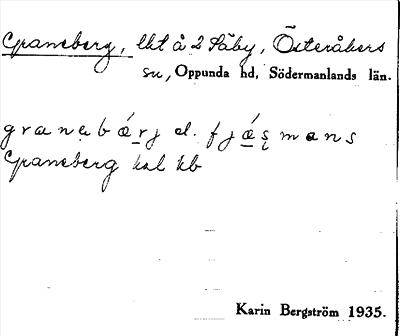 Graneberg, lht å 2 Säby, Österåkers
sn, Oppunda hd, Södermanlands län.
granabǽrj el. fjǽʂmans
Graneberg kal kb
Karin Bergström 1935.